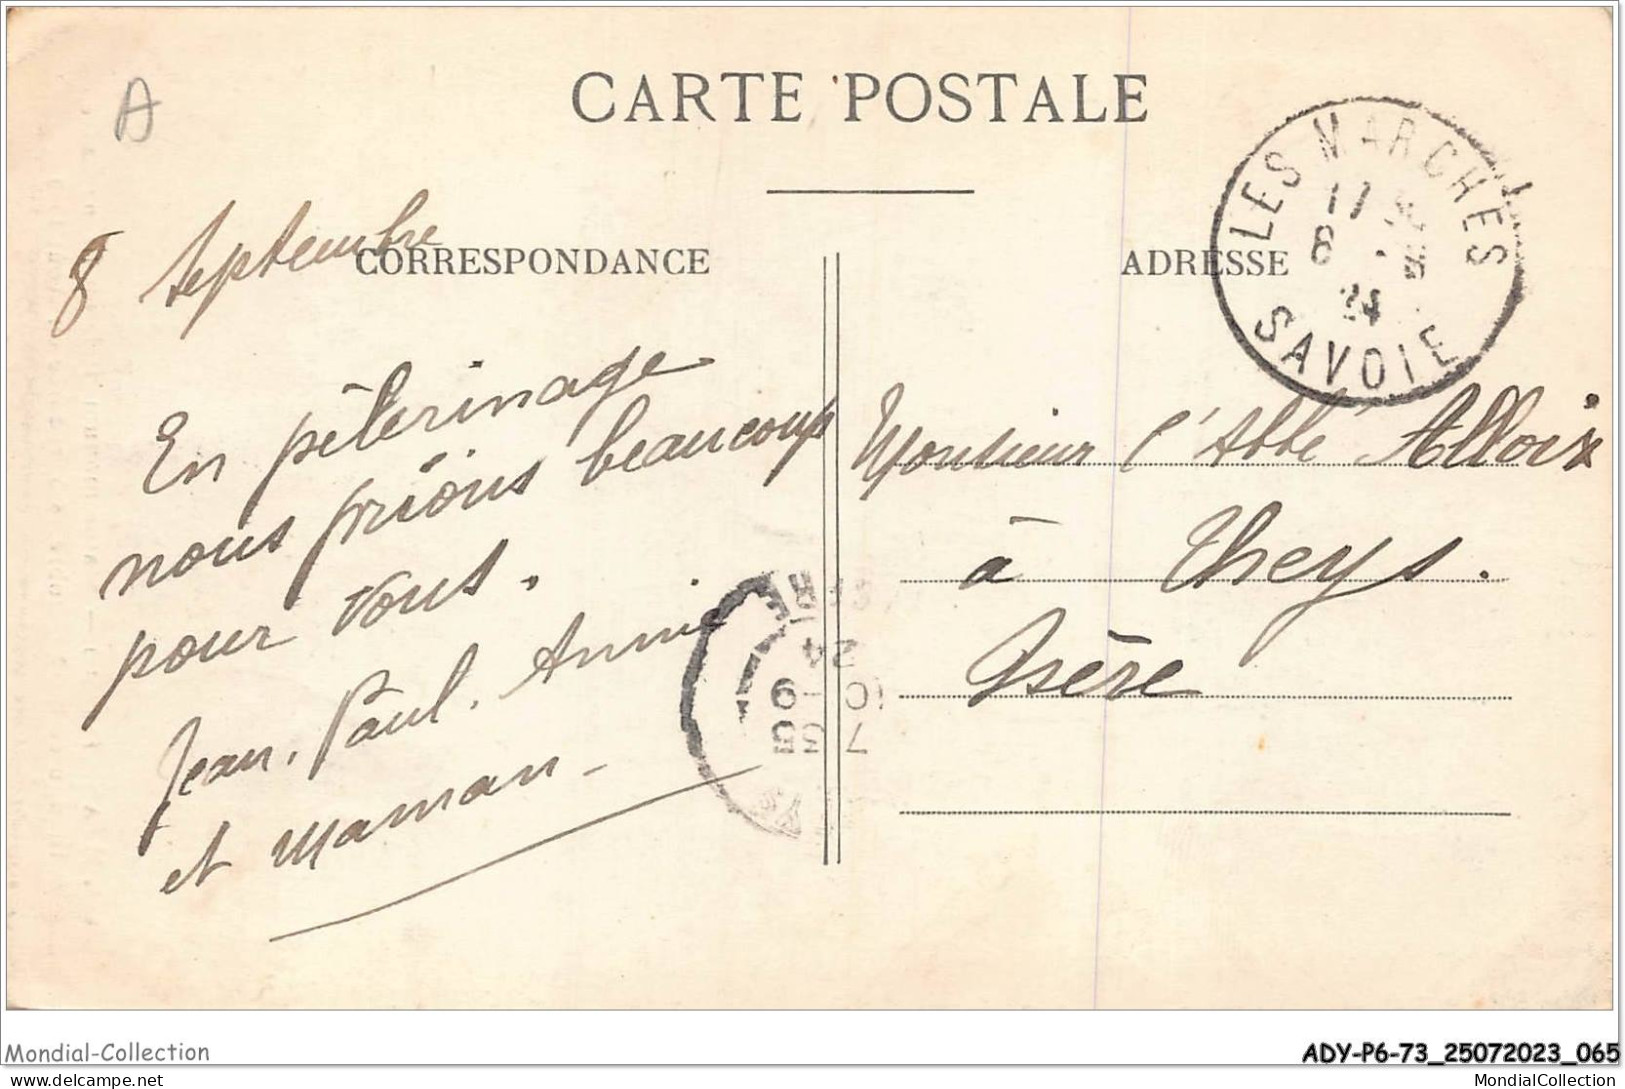 A
CARTE POSTALE
CORRESPONDANCE
ADRESSE
LES MARCHES
17
8
24
SAVOIE
8 Septembre
En pèlerinage
nous prions beaucoup
pour vous.
Jean. Paul. Annie
et maman -
Monsieur l'Abbé Alloix
à Theys.
Isère
7 35
10 - 9
24
ISERE
Mondial-Collection
ADY-P6-73_25072023_065
delcampe.net
MondialCollection